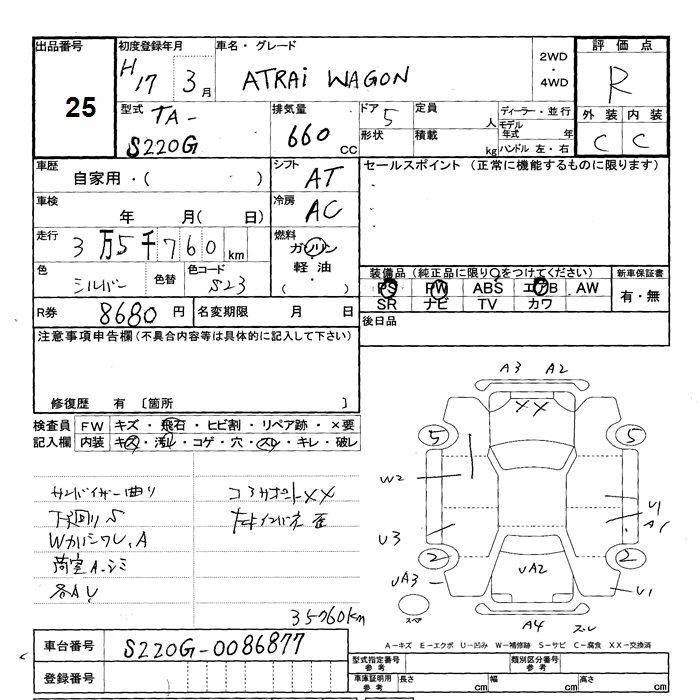 出品番号 初度登録年月 車名・グレード 2WD・4WD 評価点
25
H17 3月 ATRAi WAGON R
型式 TA-S220G 排気量 660 CC ドア 5 定員 人 ディーラー・並行 外装 内装
形状 積載 kg モデル年式 年 ハンドル 左・右 C C
車歴 自家用・( ) シフト AT セールスポイント (正常に機能するものに限ります)
車検 年 月( 日) 冷房 AC
走行 3万5千760km 燃料 ガソリン
軽油
・( )
色 シルバー 色替 色コード S23
装備品 (純正品に限り○をつけてください) 新車保証書
PS PW ABS エアB AW 有・無
SR ナビ TV カワ
R券 8680円 名変期限 月 日 後日品
注意事項申告欄 (不具合内容等は具体的に記入して下さい)
修復歴 有 〔箇所 〕
検査員 FW キズ・飛石・ヒビ割・リペア跡・×要
記入欄 内装 キズ・汚れ・コゲ・穴・スレ・キレ・破レ
サンバイザー曲り コアサポートXX
下廻りS
荷室A.シミ
各AU
35760km
A3 A2
XX
5 5
W2
U3
U1
A1
2 2
UA2
UA3
U1
スペア
A4 スレ
A-キズ E-エクボ U-凹み W-補修跡 S-サビ C-腐食 XX-交換済
車台番号 S220G-0086877
型式指定番号 参考 類別区分番号 参考
登録番号
車庫証明用 参考 長さ cm 幅 cm 高さ cm